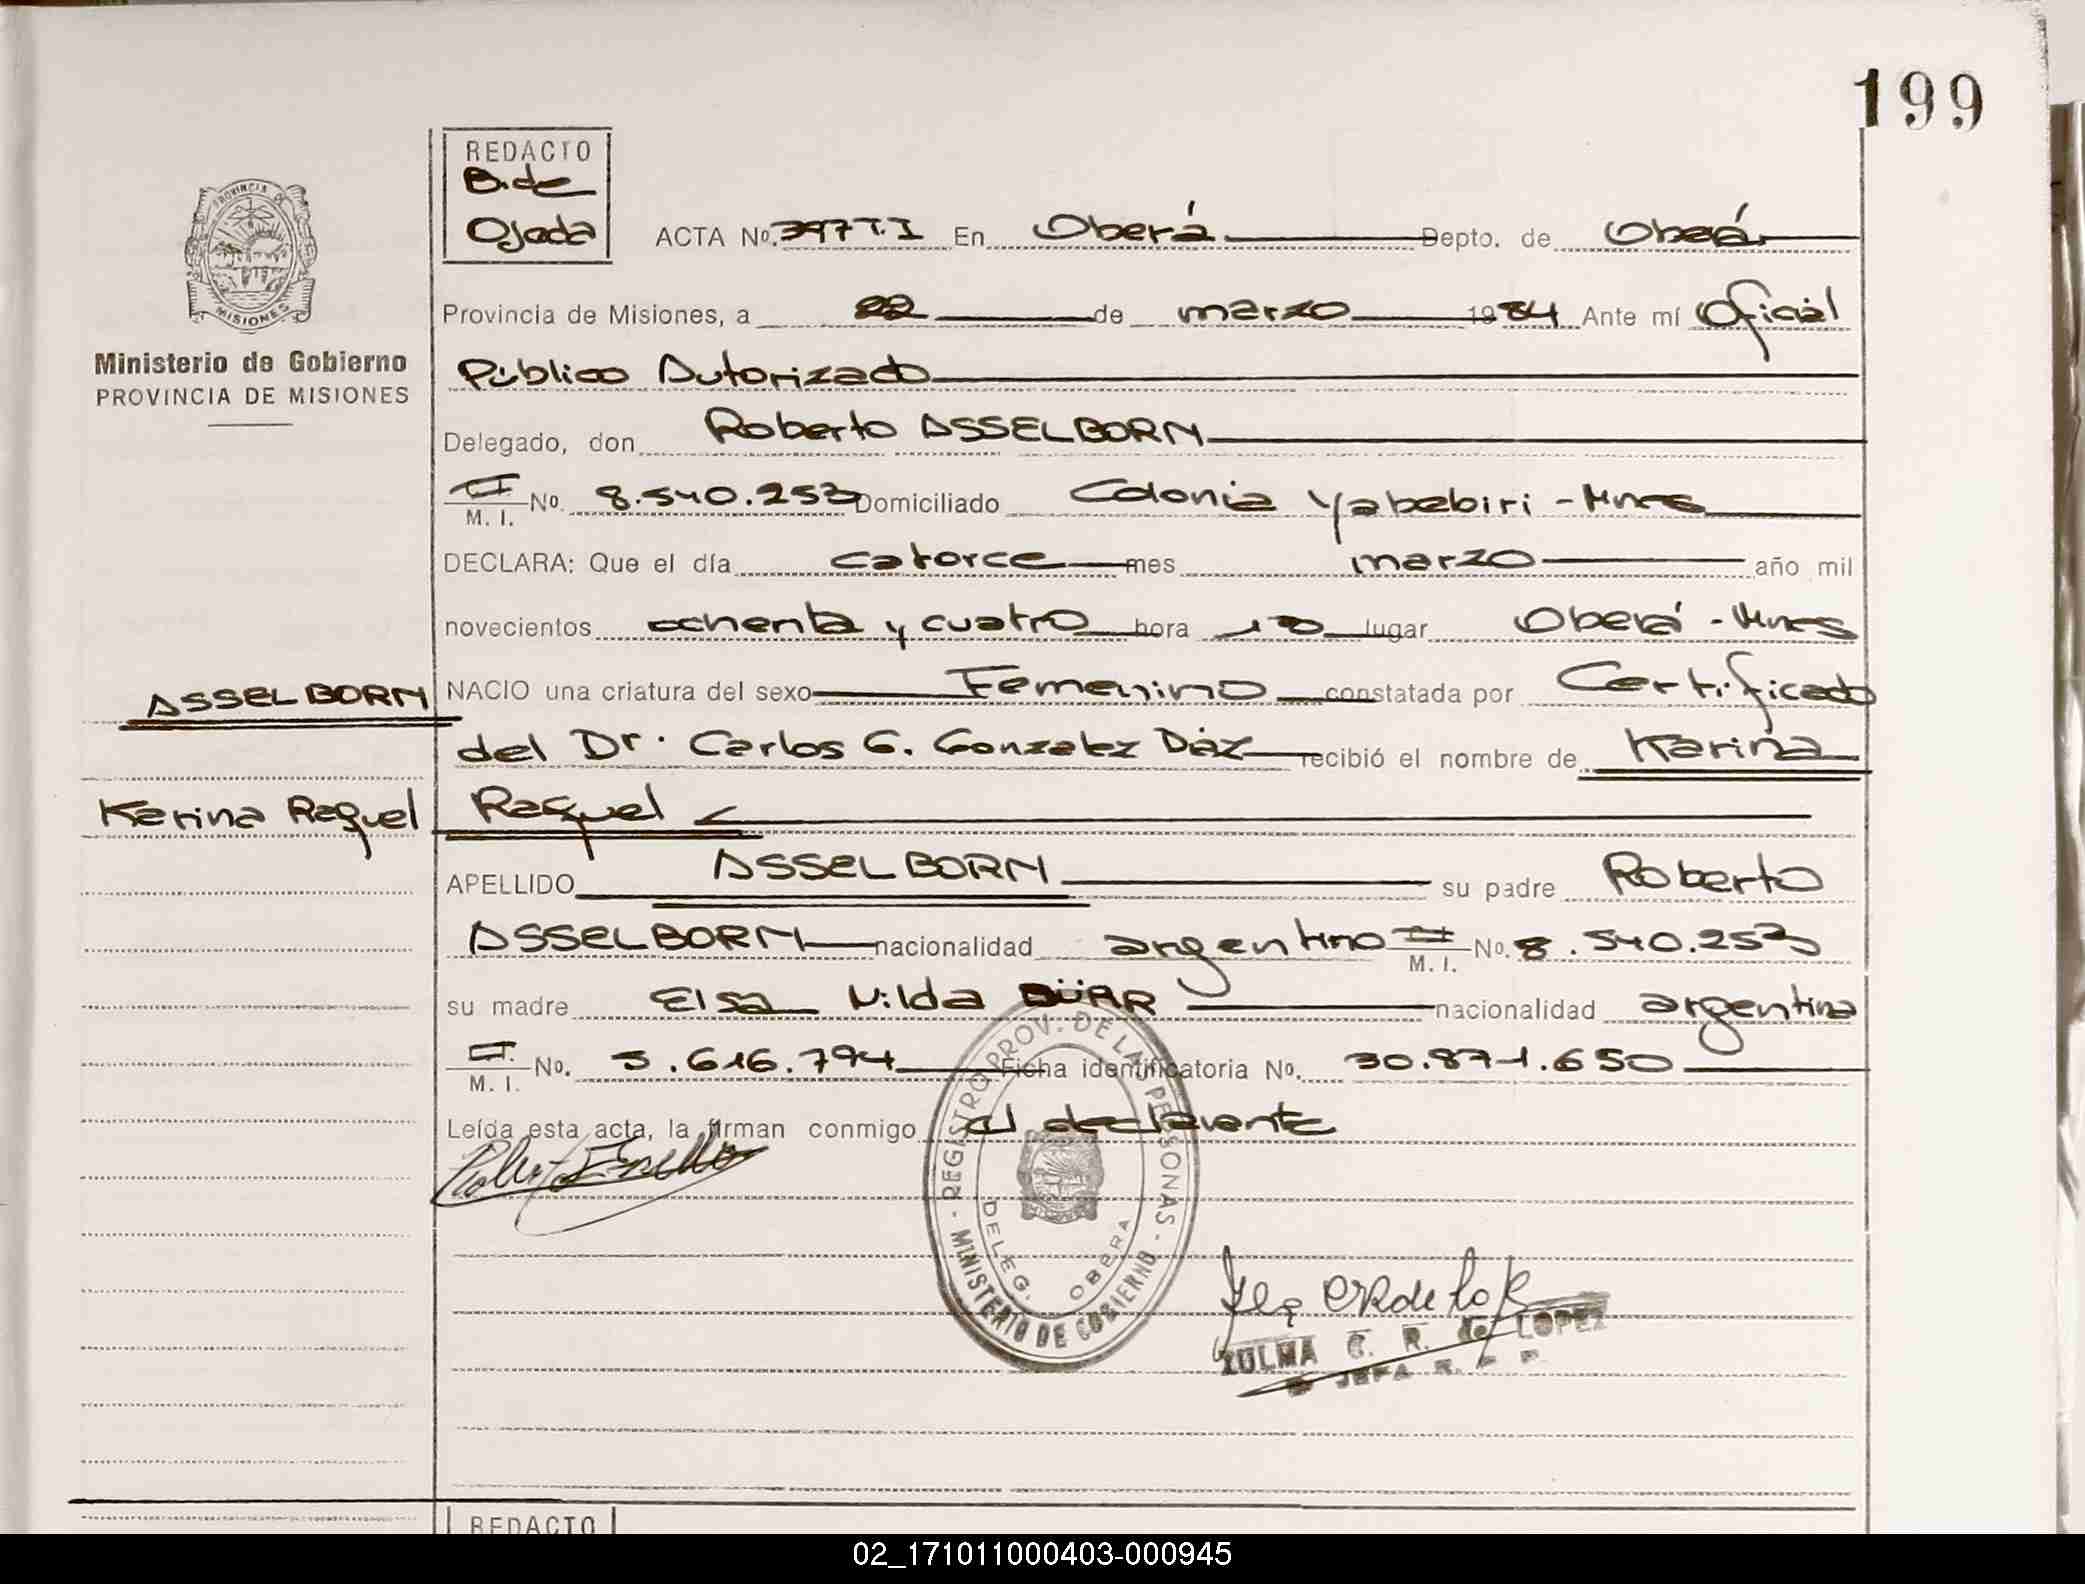 199
REDACTO
B. de
Ojeda
ACTA No. 397 T.I En Oberá Depto. de Oberá
PROVINCIA DE
MISIONES
Provincia de Misiones, a 22 de marzo 1984 Ante mí Oficial
Ministerio de Gobierno
PROVINCIA DE MISIONES
Público Autorizado
Delegado, don Roberto ASSELBORN
CI
M. I. No. 8.540.253 Domiciliado Colonia Yabebiri - Mnes
DECLARA: Que el día catorce mes marzo año mil
novecientos ochenta y cuatro hora 10 lugar Oberá - Mnes
ASSELBORN
NACIO una criatura del sexo Femenino constatada por Certificado
del Dr. Carlos G. Gonzalez Díaz recibió el nombre de Karina
Karina Raquel
Raquel
APELLIDO ASSELBORN su padre Roberto
ASSELBORN nacionalidad argentino CI
M. I. No. 8.540.253
su madre Elsa Nilda BÜAR nacionalidad argentina
CI
M. I. No. 5.616.794 Ficha identificatoria No. 30.871.650
Leída esta acta, la firman conmigo el declarante
REGISTRO PROV. DE LAS PERSONAS - MINISTERIO DE GOBIERNO -
DELEG. OBERA
ZULMA C. R. de LOPEZ
JEFA R. P. P.
REDACTO
02_171011000403-000945